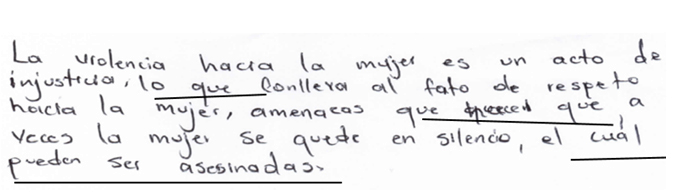 La violencia hacia la mujer es un acto de
injusticia, lo que conlleva al fato de respeto
hacia la mujer, amenazas que que a
veces la mujer se quede en silencio, el cuál
pueden ser asesinadas.